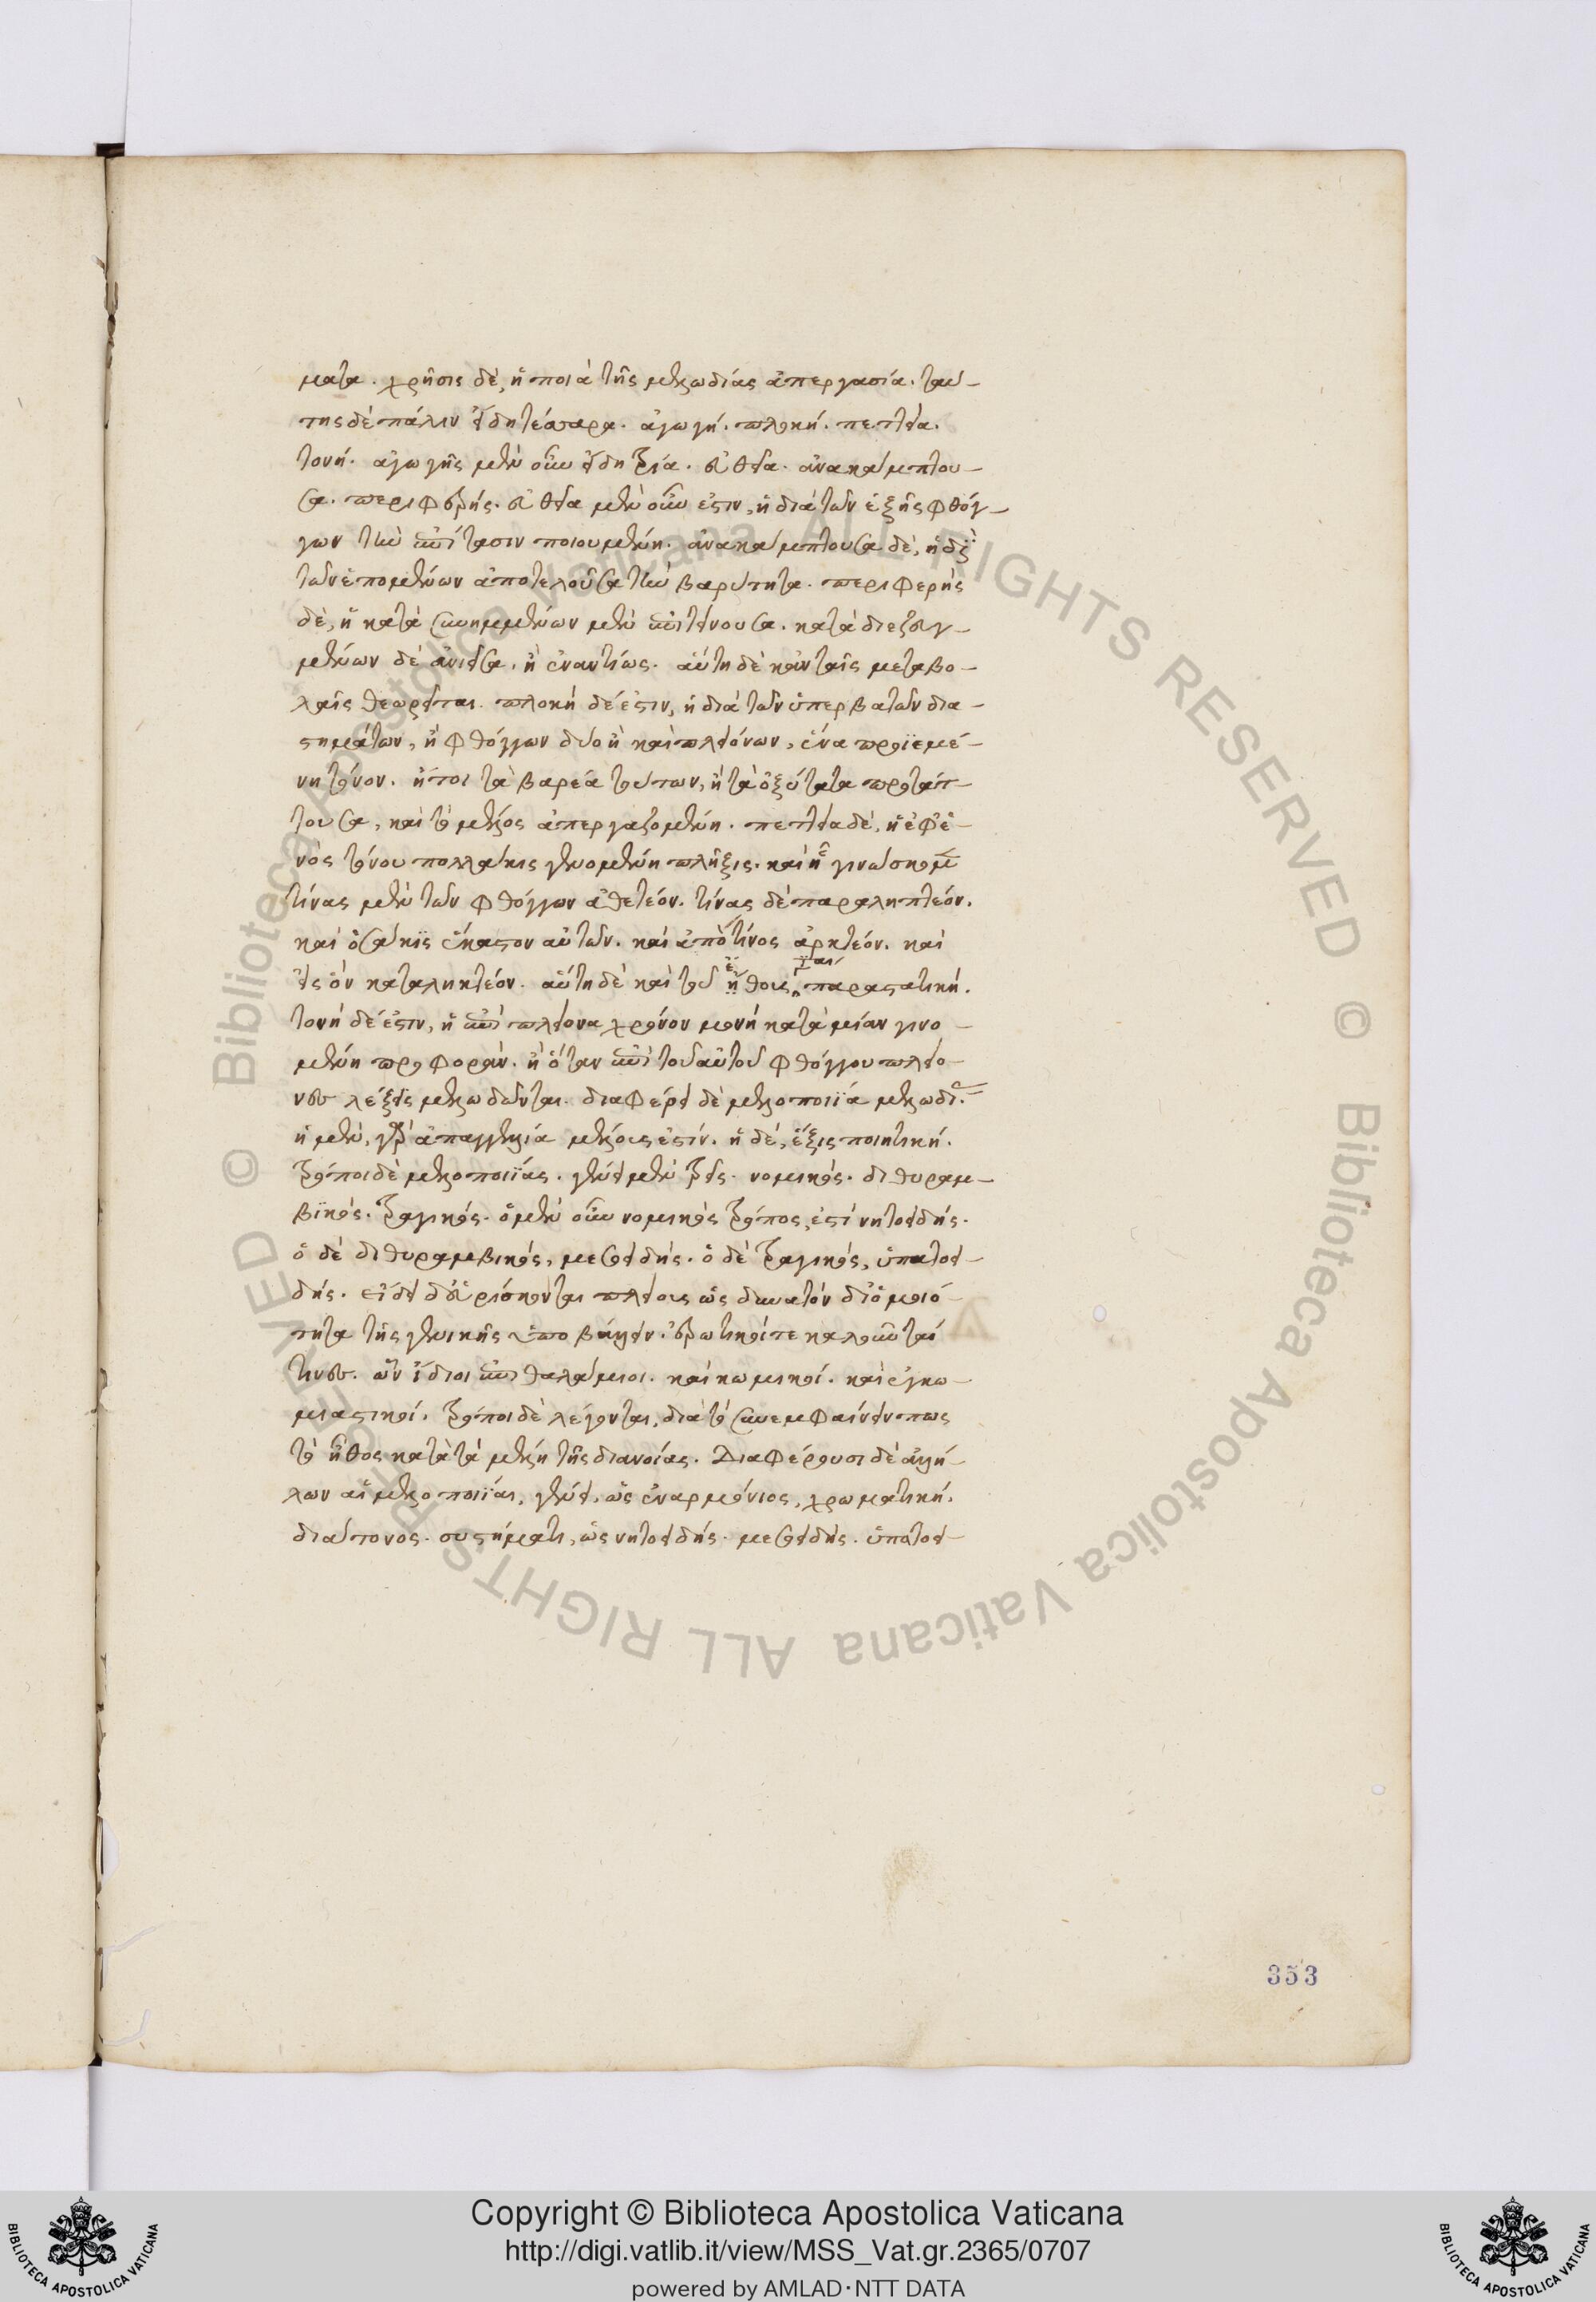 ματα. χρῆσις δὲ, ἡ ποιὰ τῆς μελωδίας ἀπεργασία. ταύ-
της δὲ πάλιν εἴδη τέσσαρα. ἀγωγή. πλοκή. πεττεία.
τονή. ἀγωγῆς μὲν οὖν εἴδη τρία. εὐθεῖα. ἀνακάμπτου-
σα. περιφερής. εὐθεῖα μὲν οὖν ἐστιν, ἡ διὰ τῶν ἑξῆς φθόγ-
γων τὴν ἐπίτασιν ποιουμένη. ἀνακάμπτουσα δὲ, ἡ διὰ
τῶν ἑπομένων ἀποτελοῦσα τὴν βαρύτητα. περιφερὴς
δὲ, ἡ κατὰ συνημμένων μὲν ἐπιτείνουσα. κατὰ διεζευγ-
μένων δὲ ἀνιεῖσα. ἢ ἐναντίως. αὕτη δὲ κἀν ταῖς μεταβο-
λαῖς θεωρεῖται. πλοκὴ δέ ἐστιν, ἡ διὰ τῶν ὑπερβατῶν δια-
στημάτων, ἢ φθόγγων δύο ἢ καὶ πλειόνων, ἕνα προϊεμέ-
νη τόνον. ἤτοι τὰ βαρέα τούτων, ἢ τὰ ὀξύτατα προτάτ-
τουσα, καὶ τὸ μέλος ἀπεργαζομένη. πεττεία δὲ, ἡ ἐφ' ἑ-
νὸς τόνου πολλάκις γενομένη πλῆξις. καὶ ᾗ γινώσκομεν
τίνας μὲν τῶν φθόγγων ἀθετέον. τίνας δὲ παραληπτέον.
καὶ ὁσάκις ἕκαστον αὐτῶν. καὶ ἀπὸ τίνος ἀρκτέον. καὶ
εἰς ὃν καταληκτέον. αὕτη δὲ καὶ τοῦ ἤθους παραστατική.
τονὴ δέ ἐστιν, ἡ ἐπὶ πλείονα χρόνον μονὴ κατὰ μίαν γινο-
μένη προφοράν. ἢ ὅταν ἐπὶ τοῦ αὐτοῦ φθόγγου πλείο-
νες λέξεις μελωδῶνται. διαφέρει δὲ μελοποιΐα μελωδίας.
ἡ μὲν, γὰρ ἀπαγγελία μέλους ἐστίν. ἡ δὲ, ἕξις ποιητική.
τρόποι δὲ μελοποιΐας. γένει μὲν τρεῖς. νομικός. διθυραμ-
βικός. τραγικός. ὁ μὲν οὖν νομικὸς τρόπος, ἐστὶ νητοειδής.
ὁ δὲ διθυραμβικός, μεσοειδής. ὁ δὲ τραγικός, ὑπατοει-
δής. εἴδει δ' εὑρίσκονται πλείους ὡς δυνατὸν δι' ὁμοιό-
τητα τῆς γενικῆς ὑποβάλλειν. ἐρωτικοί τε καλοῦνταί
τινες. ὧν ἴδιοι ἐπιθαλάμιοι. καὶ κωμικοί. καὶ ἐγκω-
μιαστικοί. τρόποι δὲ λέγονται, διὰ τὸ συνεμφαίνειν πως
τὸ ἦθος κατὰ τὰ μέλη τῆς διανοίας. Διαφέρουσι δὲ ἀλλή-
λων αἱ μελοποιΐαι, γένει, ὡς ἐναρμόνιος, χρωματική.
διάτονος. συστήματι, ὡς νητοειδής. μεσοειδής. ὑπατοει-
353
Copyright © Biblioteca Apostolica Vaticana
http://digi.vatlib.it/view/MSS_Vat.gr.2365/0707
powered by AMLAD·NTT DATA